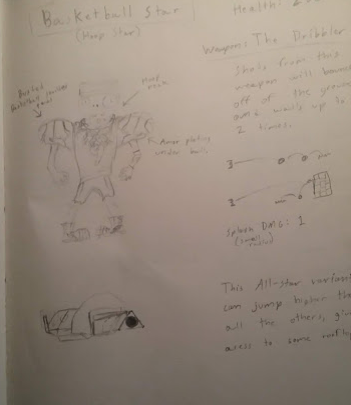 Basketball Star
(Hoop Star)
Health: 2
Weapon: The Dribbler
Shots from this
weapon will bounce
off of the ground
and walls up to
2 times.
Busted
Basketball
gear
Hoop
Armor plating
under
Splash DMG: 1
(small radius)
This All-star variant
can jump higher than
all the others, give
acess to some